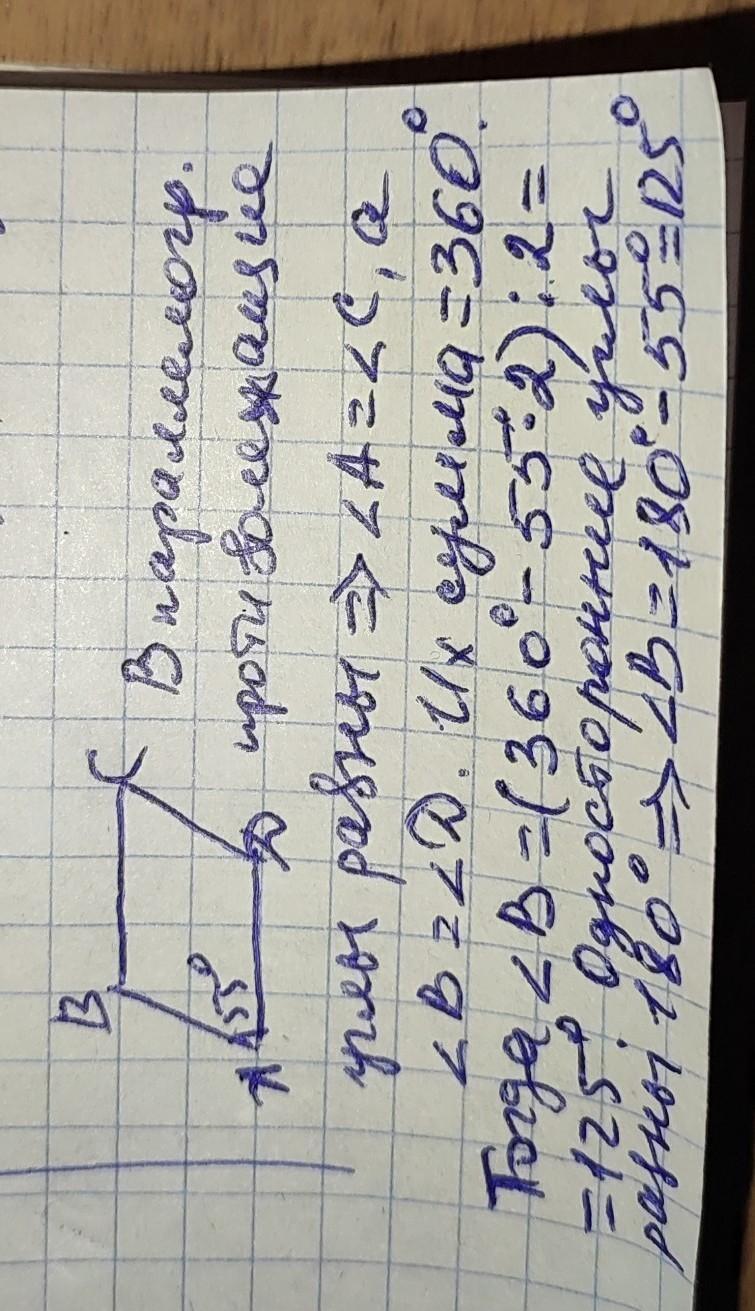 B C
A 55° D
В параллелогр.
противолежащие
углы равны => ∠A = ∠C, а
∠B = ∠D. Их сумма = 360°.
Тогда ∠B = (360° - 55°·2) : 2 =
= 125° Односторонние углы
равны 180° => ∠B = 180° - 55° = 125°